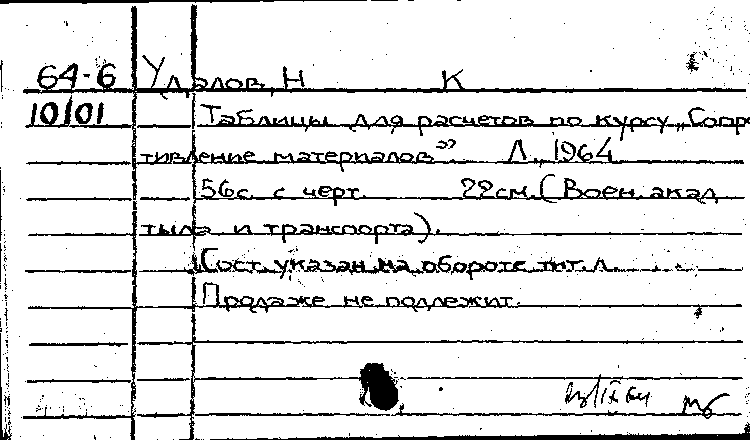 64-6 Удалов, Н К
10101 Таблицы для расчетов по курсу „Сопр
тивление материалов” Л., 1964
56с. с черт. 22см. (Воен. акад
тыла и транспорта).
Сост. указан на обороте тит. л.
Продаже не подлежит.